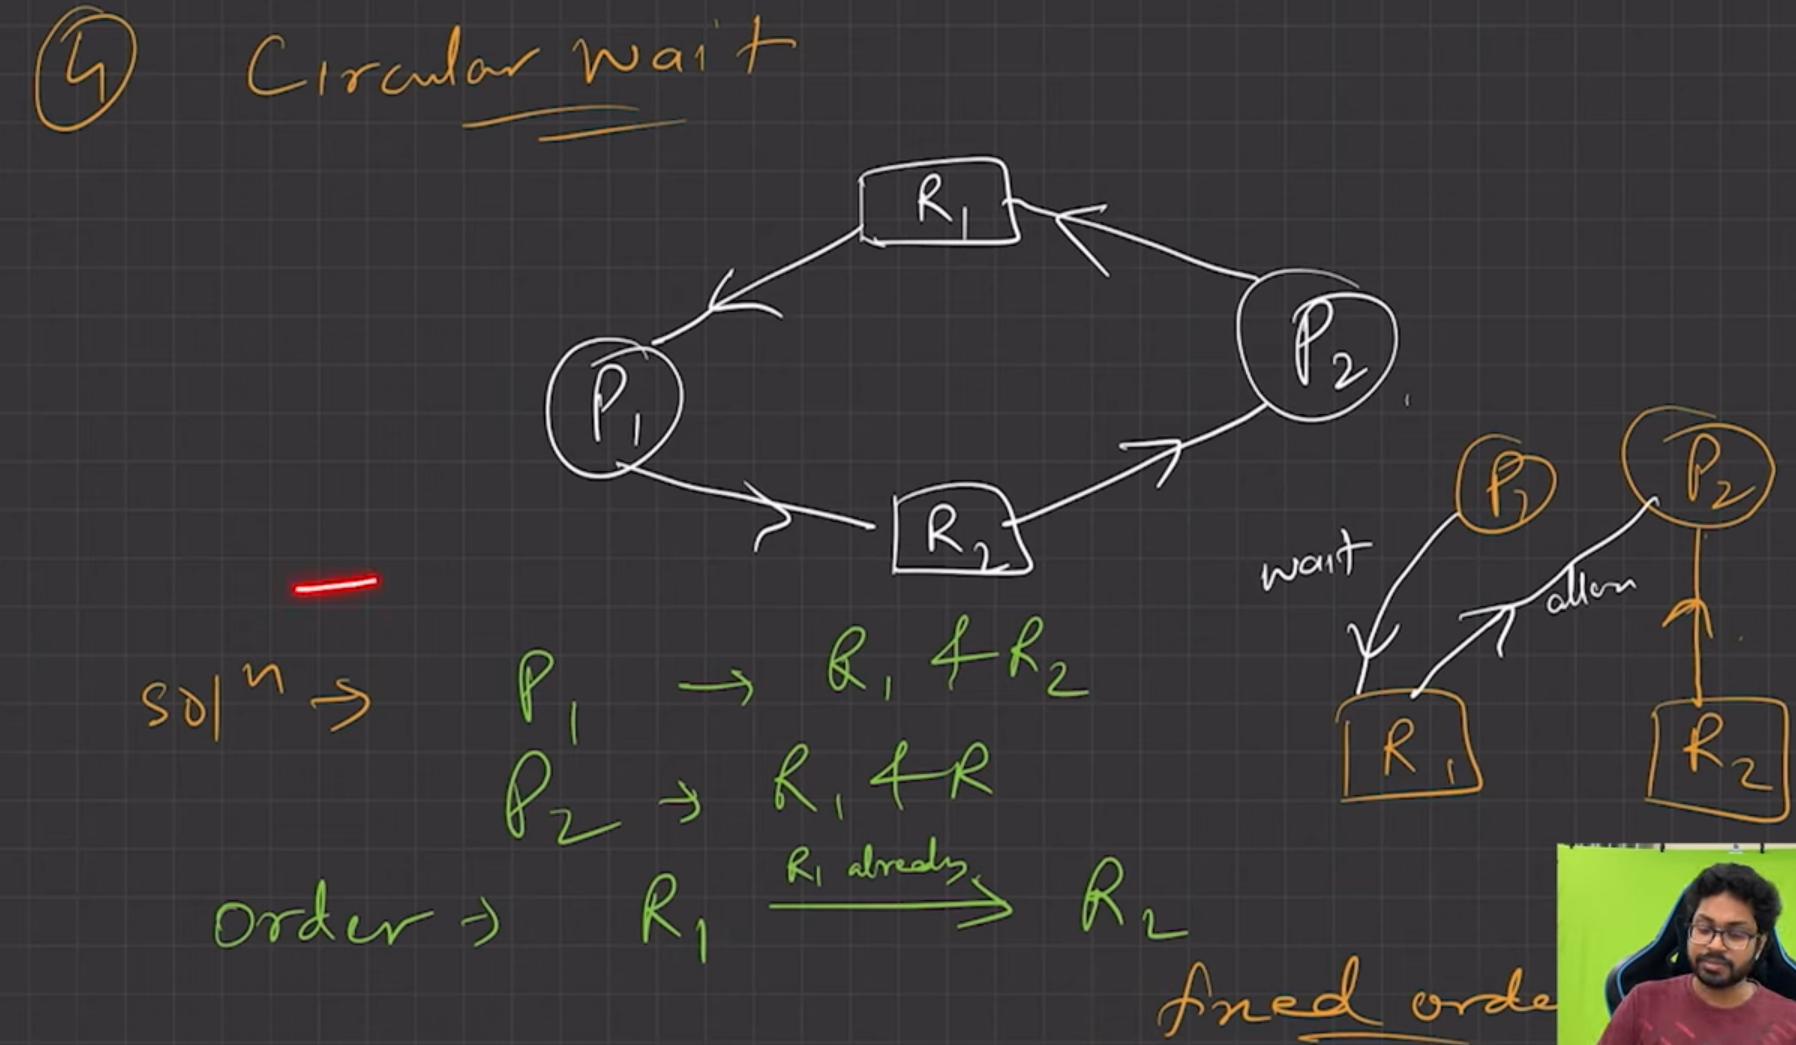 4 Circular wait
R1
P2
P1
R2
P1 P2
wait
allow
R1 R2
solⁿ → P1 → R1 & R2
P2 → R1 & R
order → R1 R1 already → R2
fixed orde